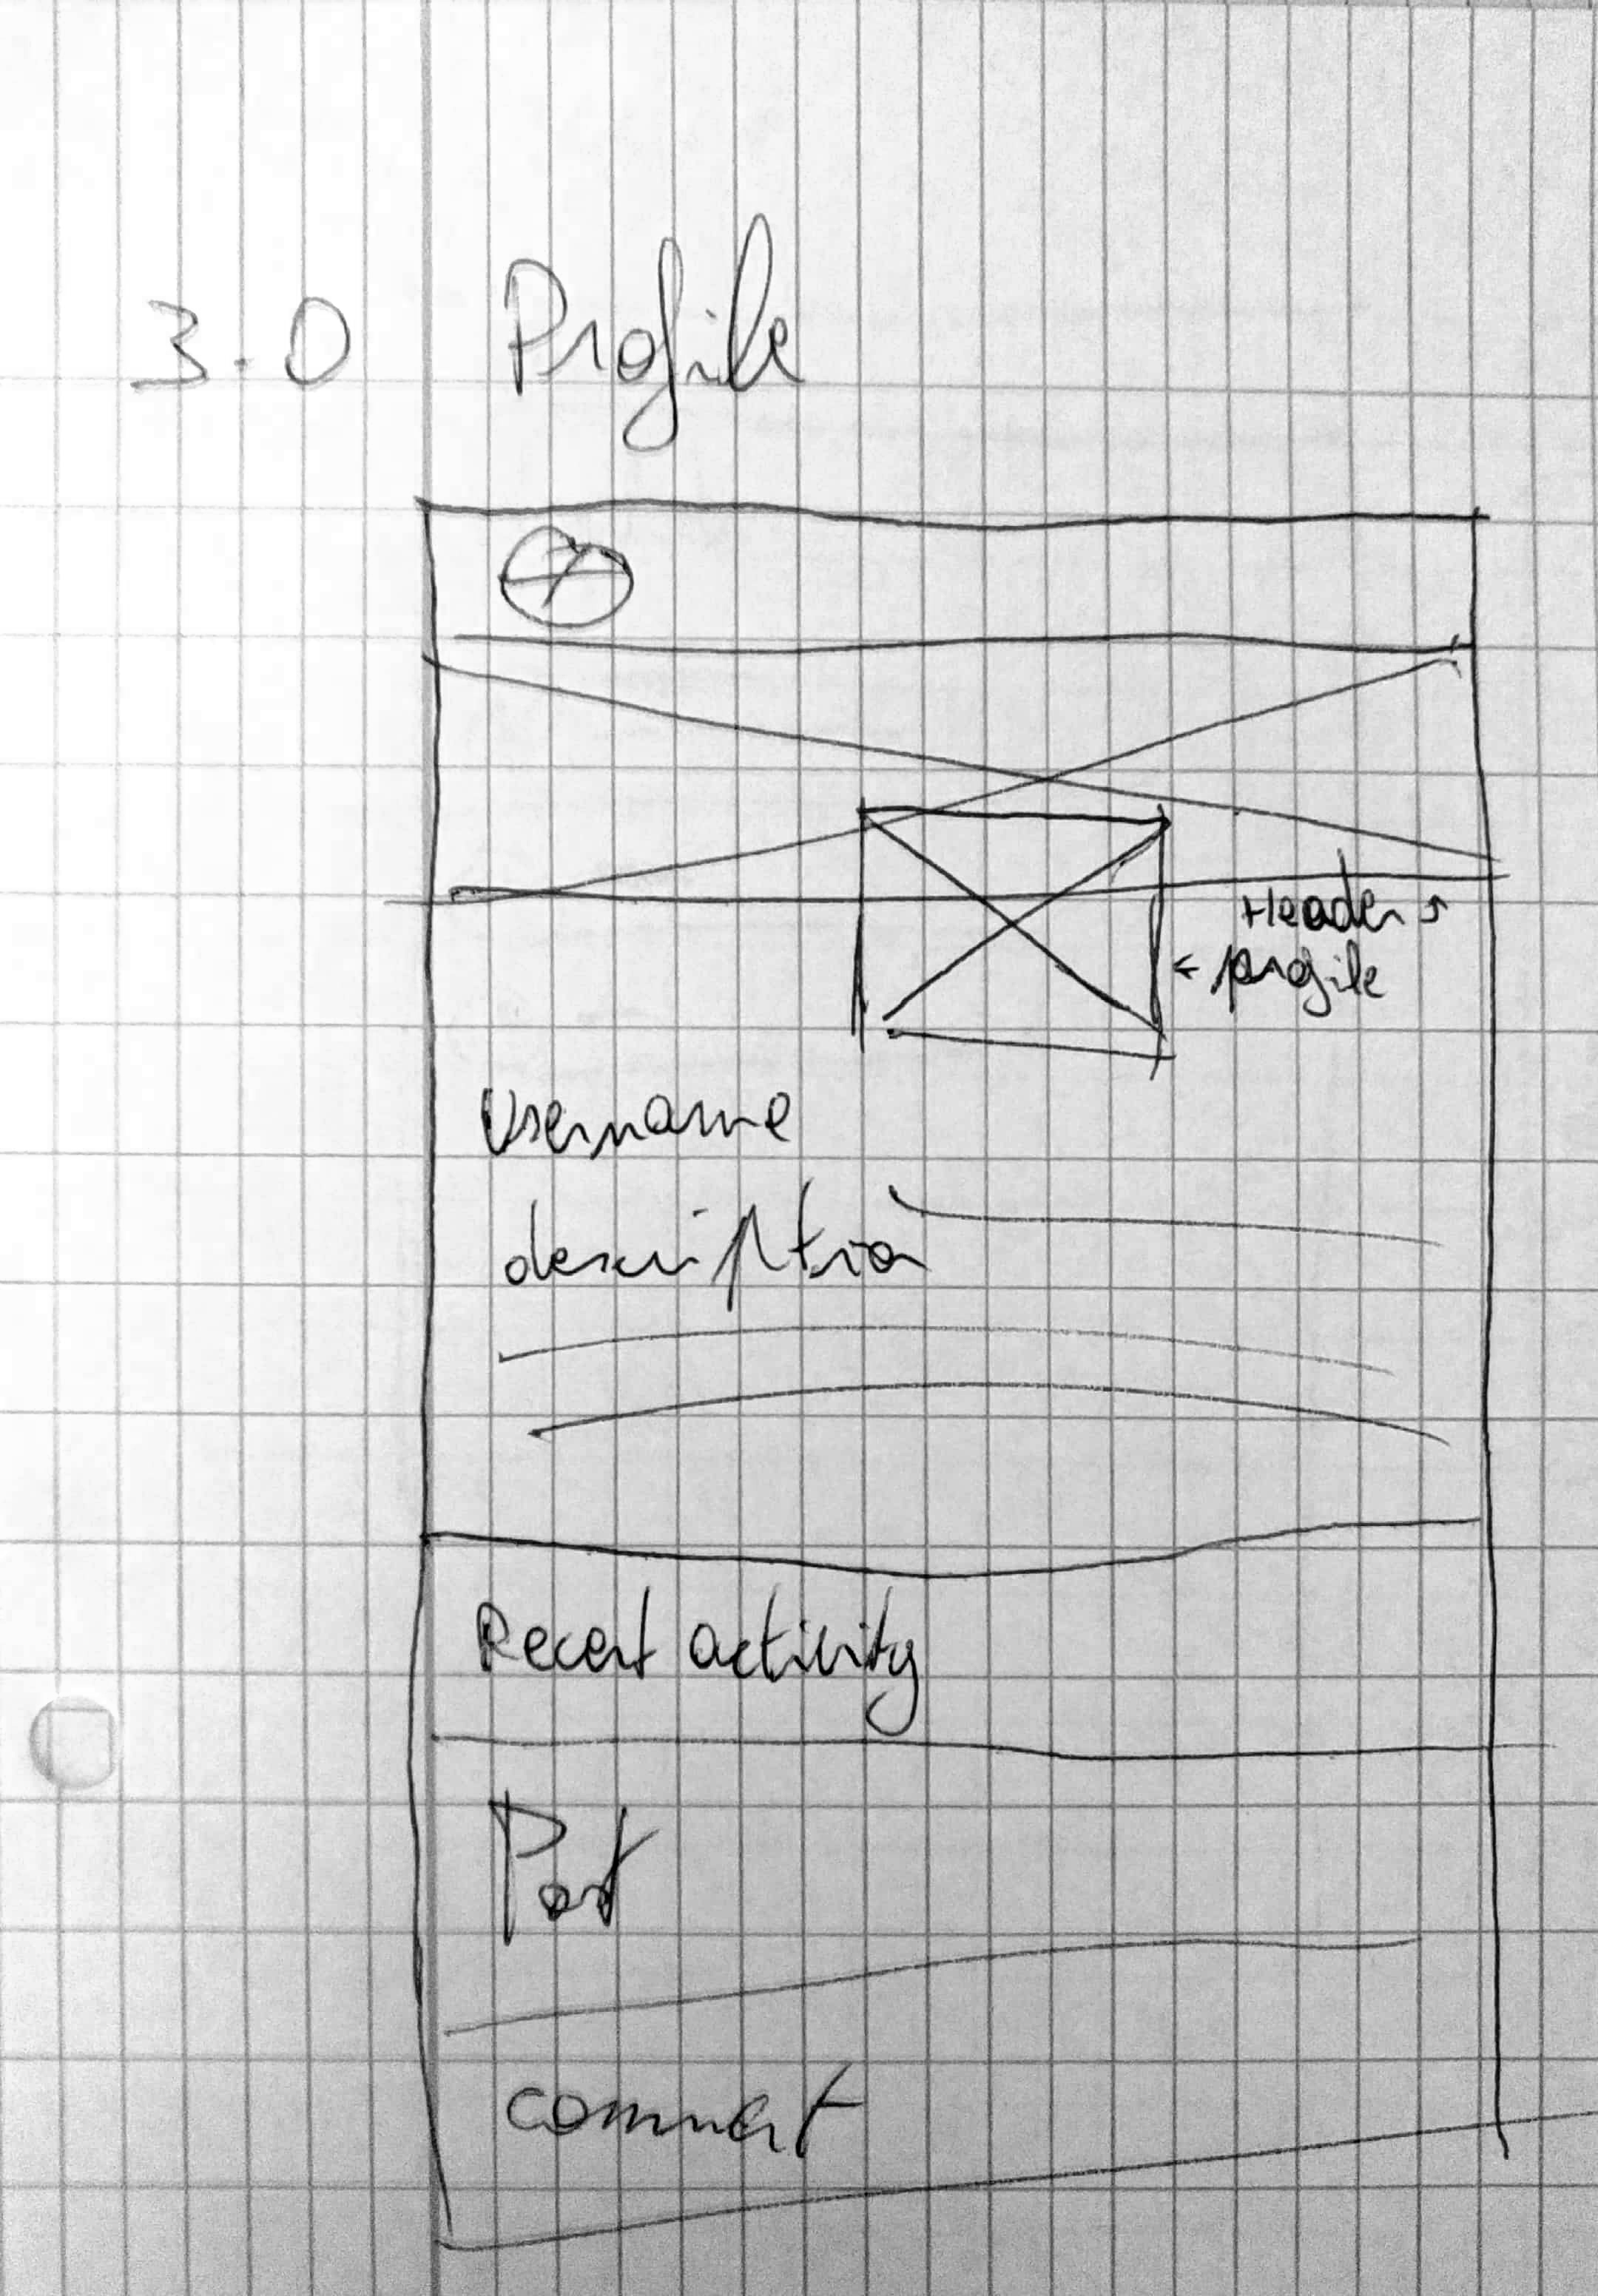 3.0 Profile
Header
profile
Username
description
Recent activity
Post
comment